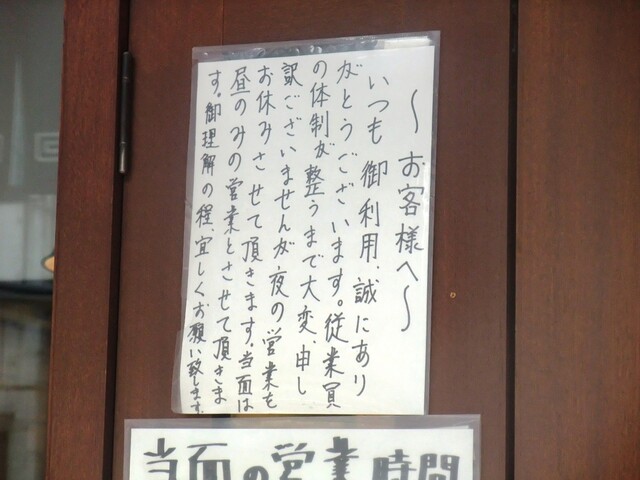 〜お客様へ〜
いつも御利用、誠にあり
がとうございます。従業員
の体制が整うまで大変、申し
訳ございませんが夜の営業を
お休みさせて頂きます。当面は
昼のみの営業とさせて頂きま
す。御理解の程、宜しくお願い致します。
当面の営業時間